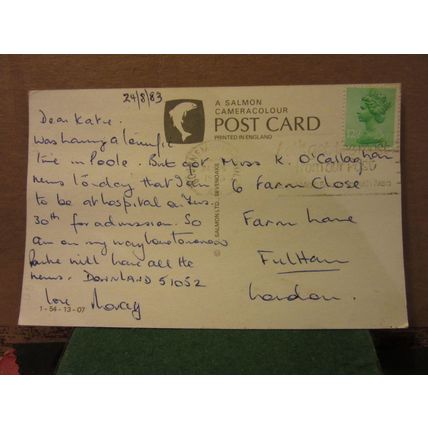 24/8/83
Dear Katie.
Was having a
time in Poole. But got
news today that I am
to be at hospital on Tues.
30th for admission. So
am on my way home tomorrow
will have all the
news. DOWNLAND 51052
love
1-54-13-07
A SALMON
CAMERACOLOUR
POST CARD
PRINTED IN ENGLAND
© SALMON LTD., SEVENOAKS
Miss K. O'Callaghan
6 Farm Close
Farm Lane
FulHam
London.